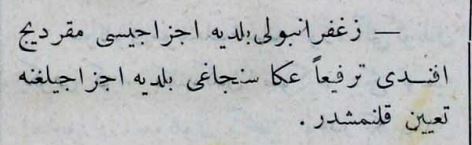 — زغفرانبولی بلدیه اجزاجیسی مقردیج
افندی ترفیعاً عكا سنجاغی بلدیه اجزاجیلغنه
تعیین قلنمشدر .